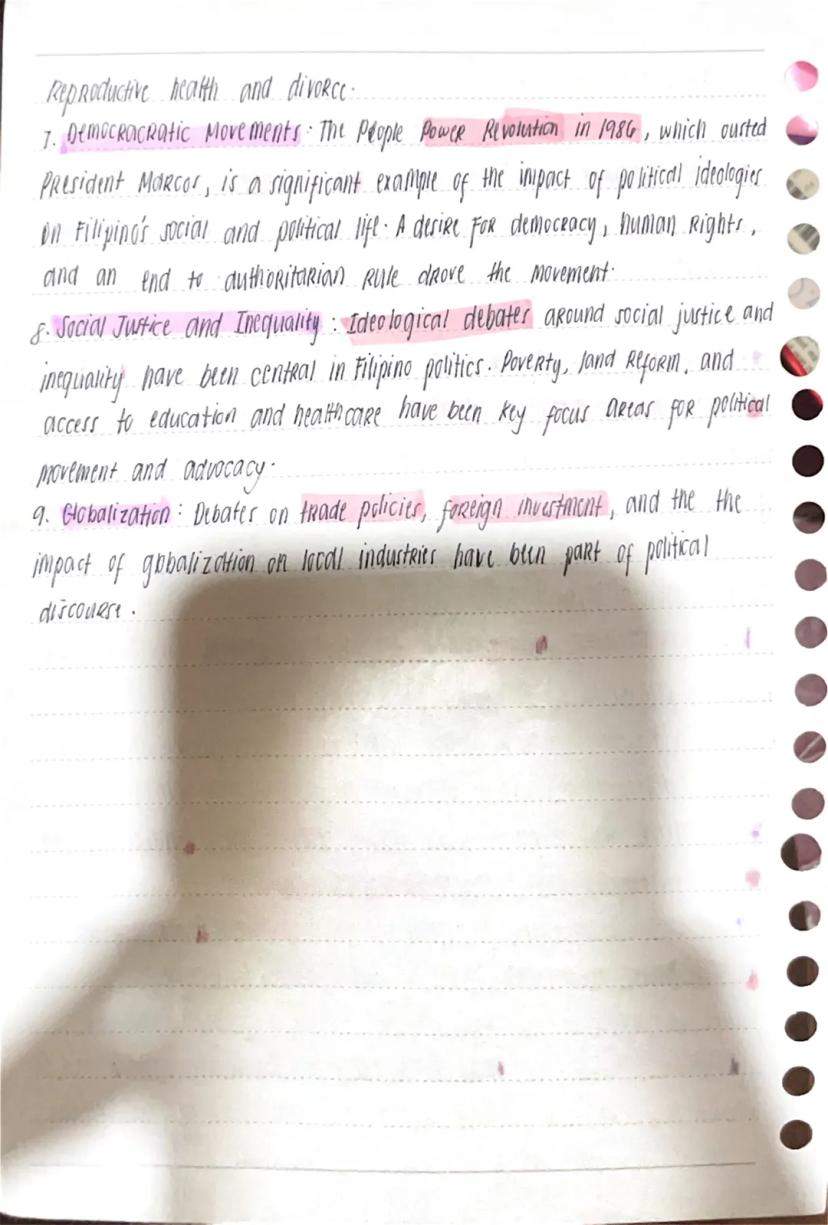 Reproductive health and divorce.
7. Democracratic Movements: The People Power Revolution in 1986, which ousted
President Marcos, is a significant example of the impact of political ideologies
on Filipino's social and political life. A desire for democracy, human rights,
and an end to authoritarian rule drove the movement.
8. Social Justice and Inequality: Ideological debates around social justice and
inequality have been central in Filipino politics. Poverty, land reform, and
access to education and healthcare have been key focus areas for political
movement and advocacy.
9. Globalization: Debates on trade policies, foreign investment, and the the
impact of globalization on local industries have been part of political
discourse.